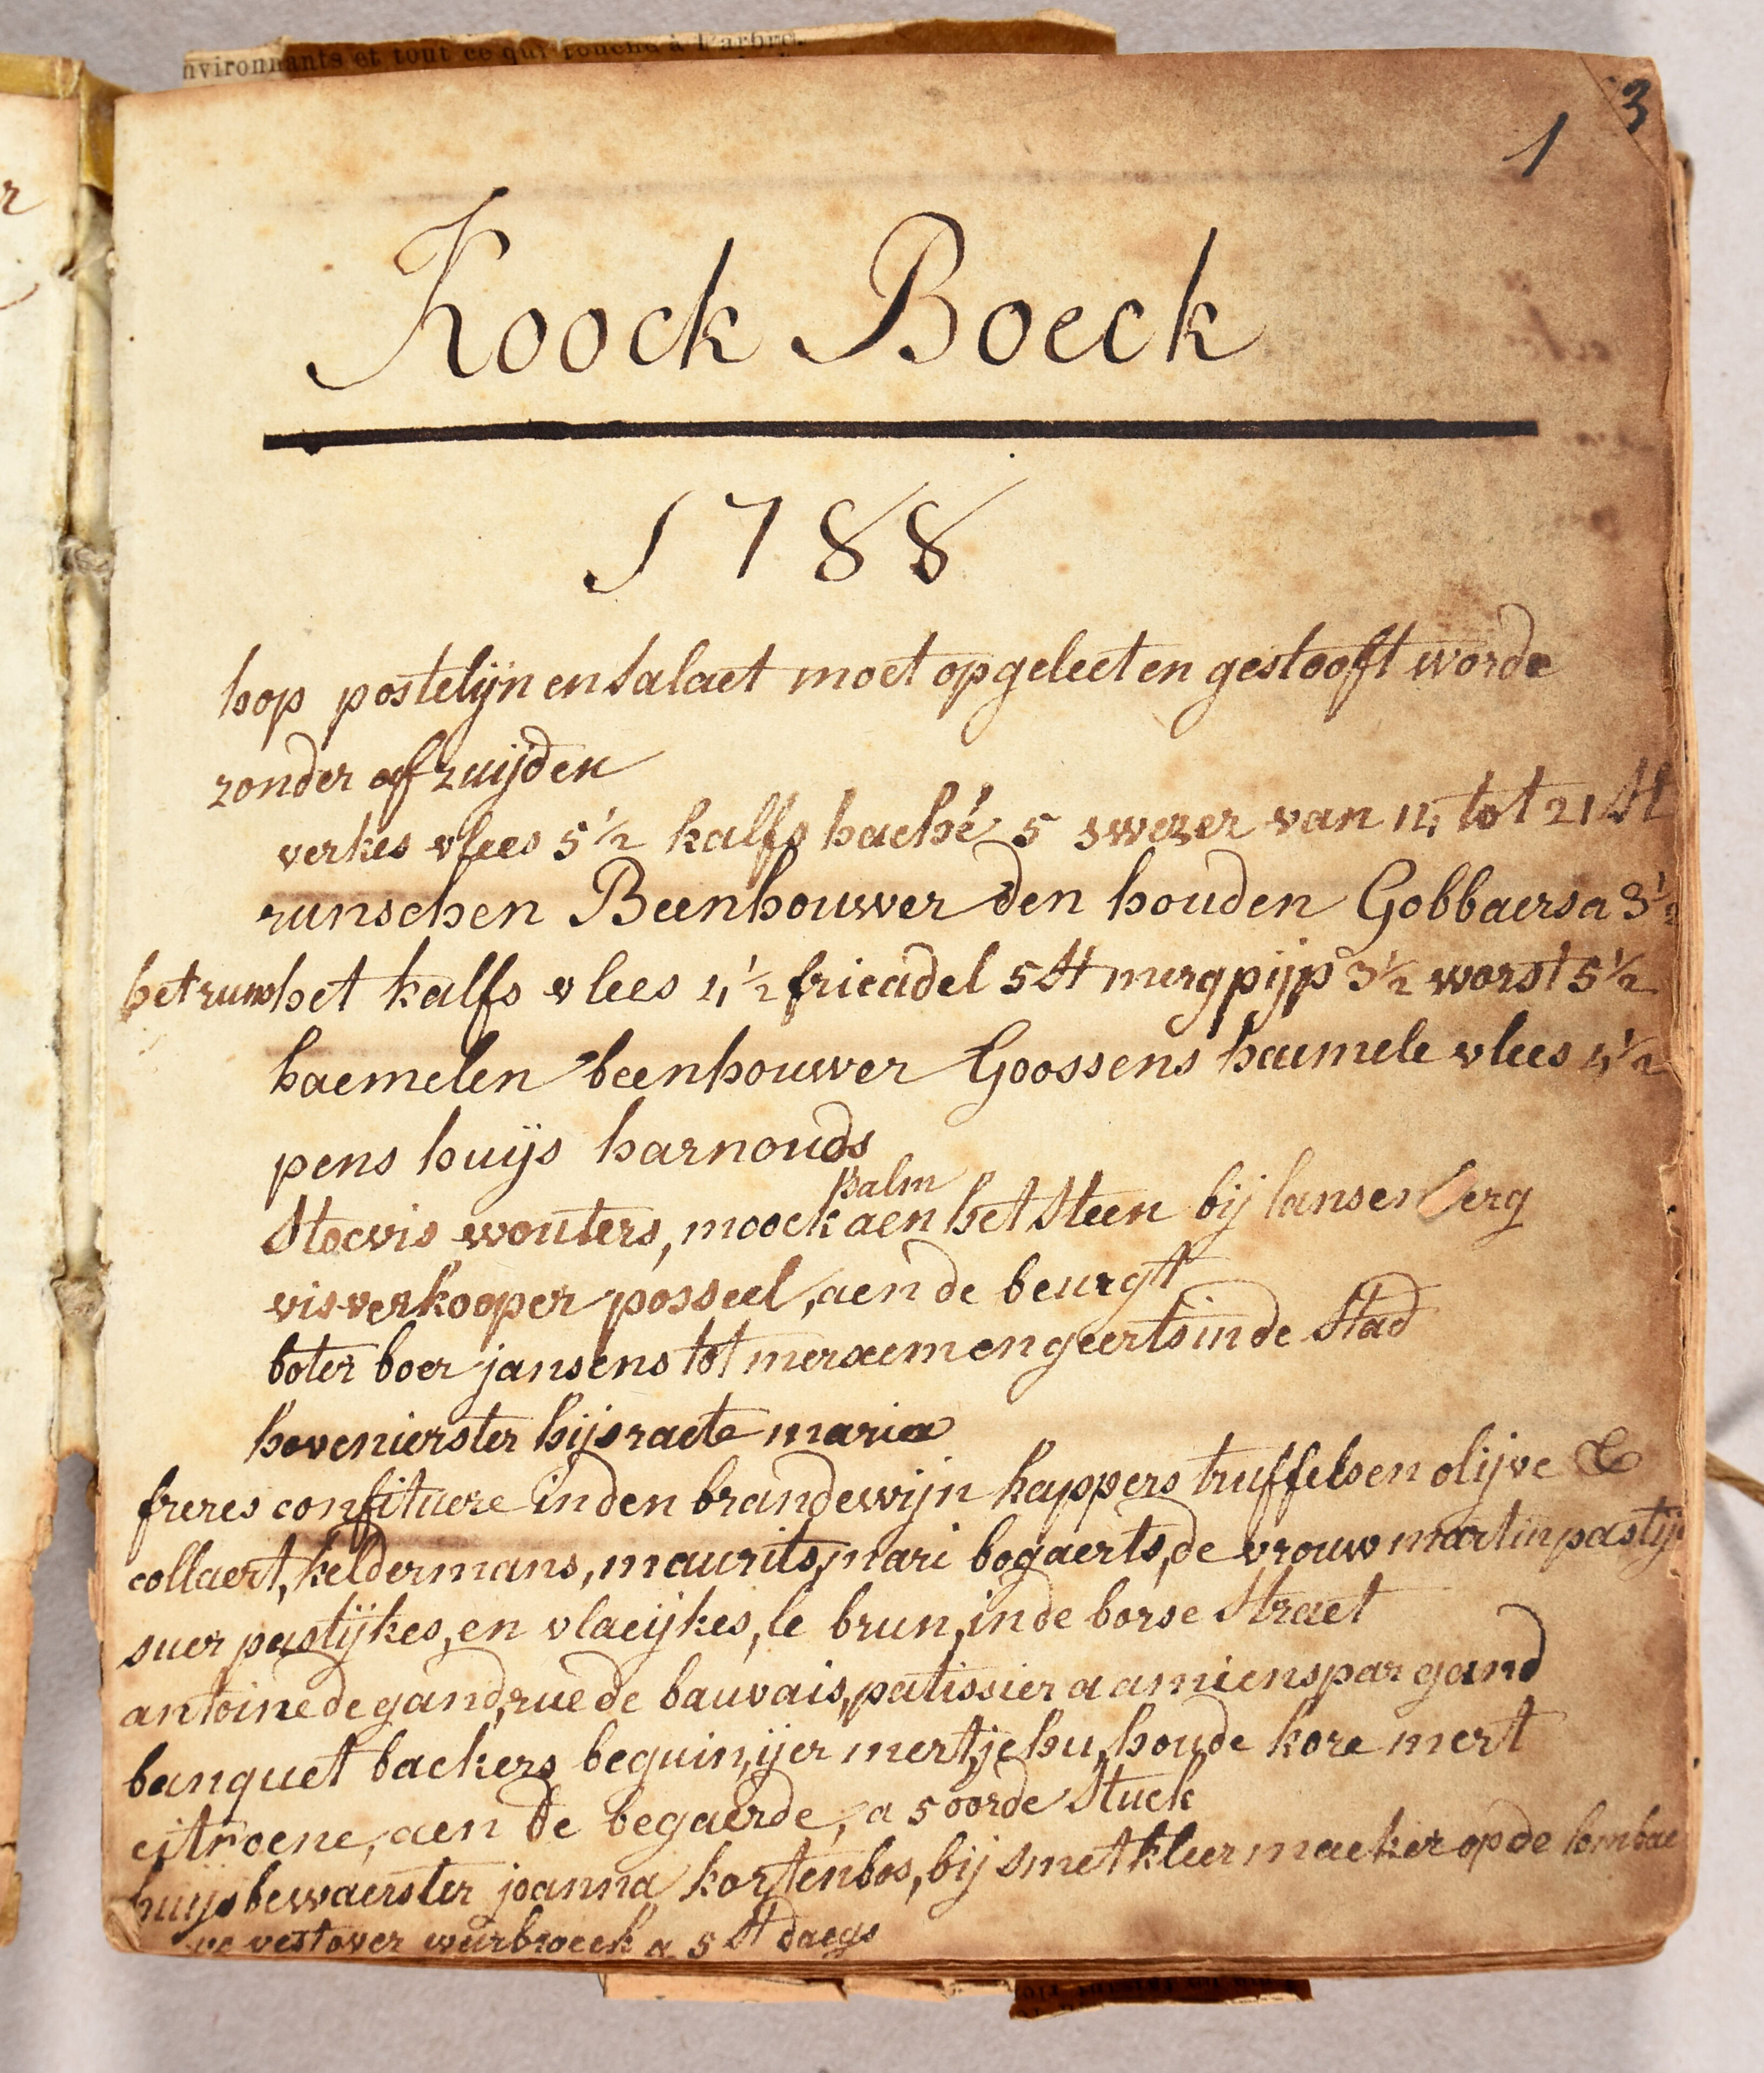 nvironnants et tout ce qui touche à l'arbre.
3
1
Koock Boeck
1788
hop postelijn en salaet moet opgeleet en gestooft worde
zonder af zuijden
verkes vlees 5½ kalfs haché 5 swezer van 14 tot 21 St
runschen Beenhouwer den houden Gobbaers a 3½
het runs het kalfs vlees 4½ fricadel 5 St mergpijp 3½ worst 5½
haemelen beenhouwer Goossens haemele vlees 4½
pens huijs harnouds
palm
Stocvis wouters, moock aen het Steen bij lansenberg
visverkooper posseel, aen de beurgt
boter boer jansens tot merxem en geerts in de Stad
hovenierster hijsraete maria
freres confituere in den brandewijn kappers truffels en olijve &
collaert, keldermans, maurits, mari bogaerts, de vrouw martin pastij
suer pastijkes, en vlaeijkes, le brun, in de borse Straet
antoine de gand, rue de bauvais, patissier a amiens par gand
banquet backers beguin, ijer mert, jehu, houde kore mert
citroene, aen de begaerde, a 5 oorde Stuck
huijsbewaerster joanna kortenbos, bij smet kleermaeker op de lombae
vest over weirbroeck a 5 St daegs